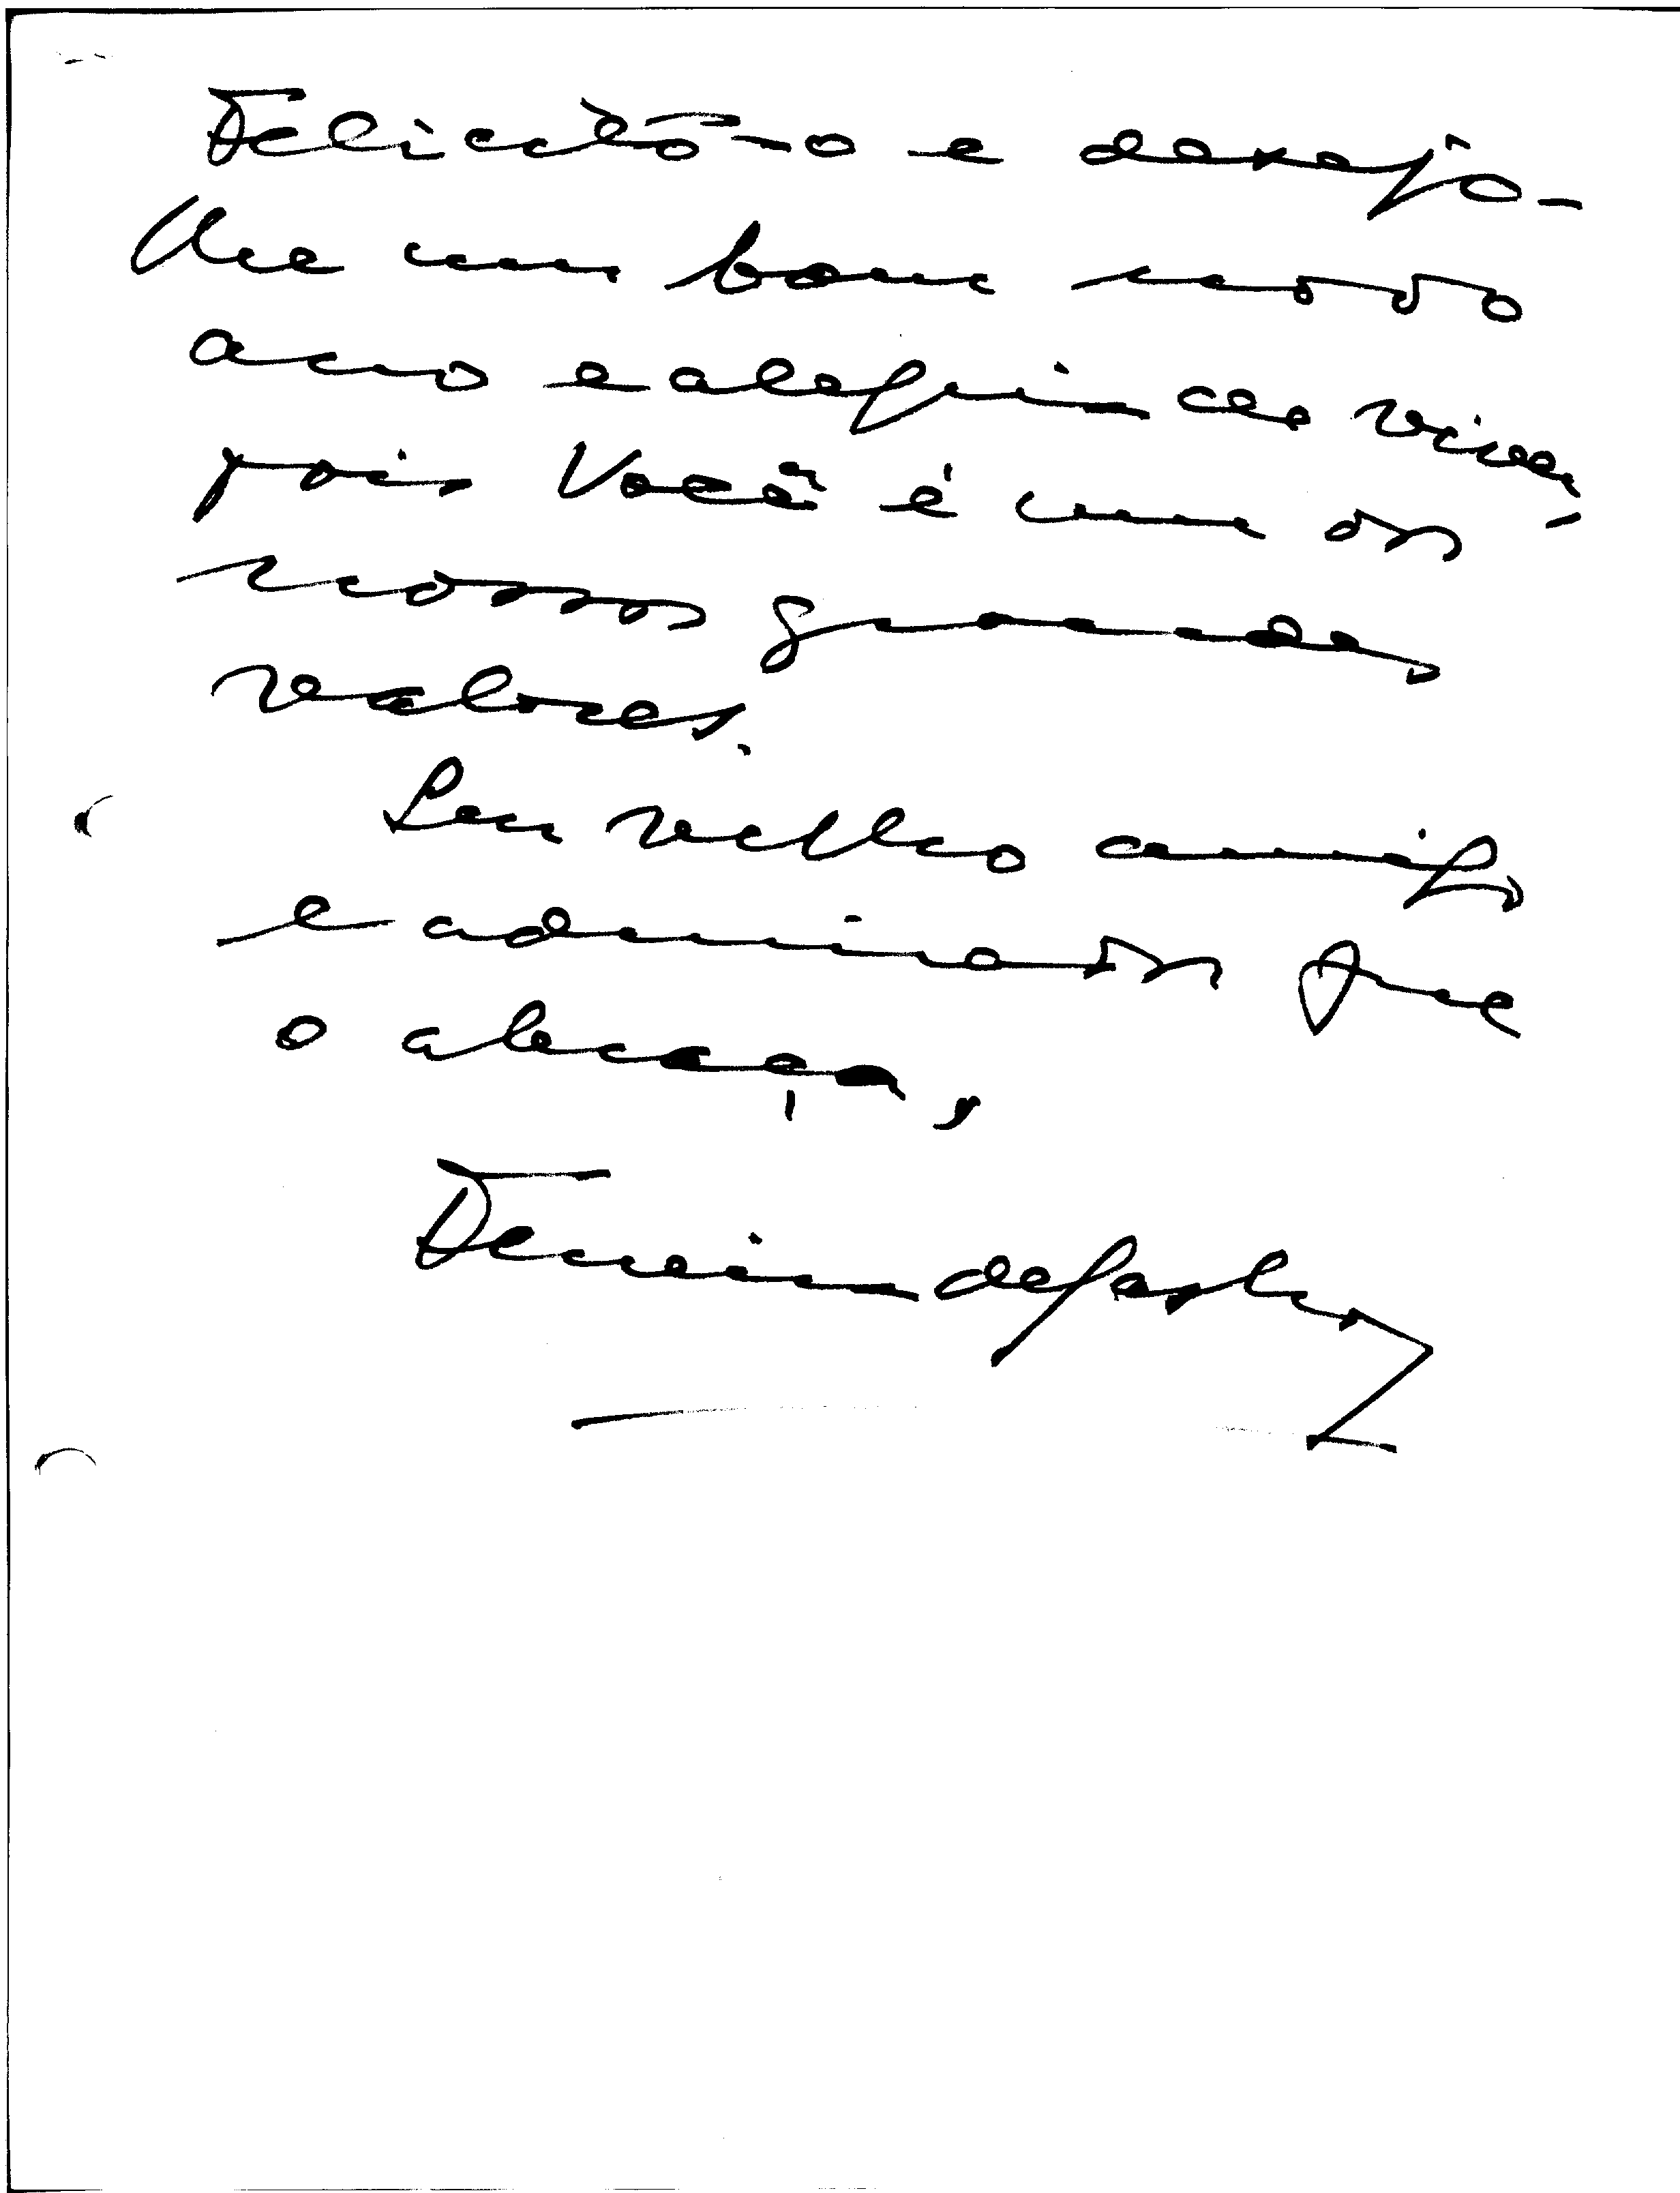 Felicito-o e desejo-
lhe um bom novo
ano e alegria de viver,
pois Você é um dos
nossos grandes
valores.
Seu velho amigo
e admirador que
o abraça,